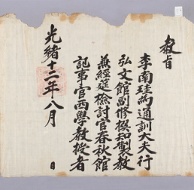 教旨
李南珪為通訓大夫行
弘文館副修撰知製教
兼經筵檢討官春秋館
記事官西學教授者
光緒十二年八月 日